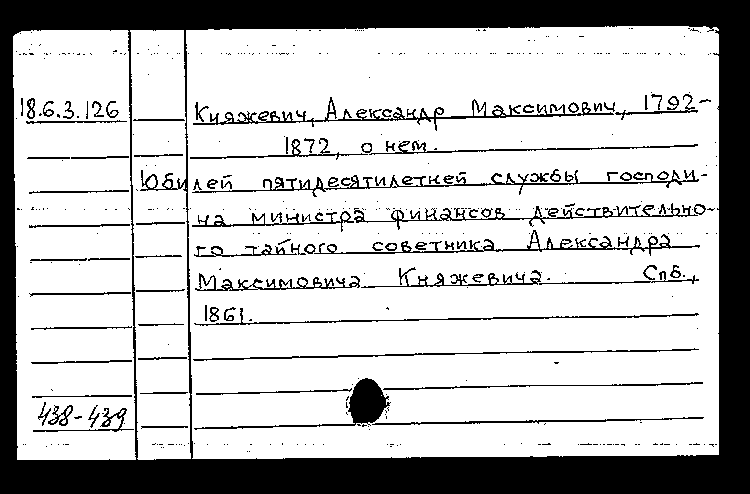 18.6.3.126 Княжевич, Александр Максимович, 1792-
1872, о нем.
Юбилей пятидесятилетней службы господи-
на министра финансов действительно-
го тайного советника Александра
Максимовича Княжевича. Спб.,
1861.
438-439